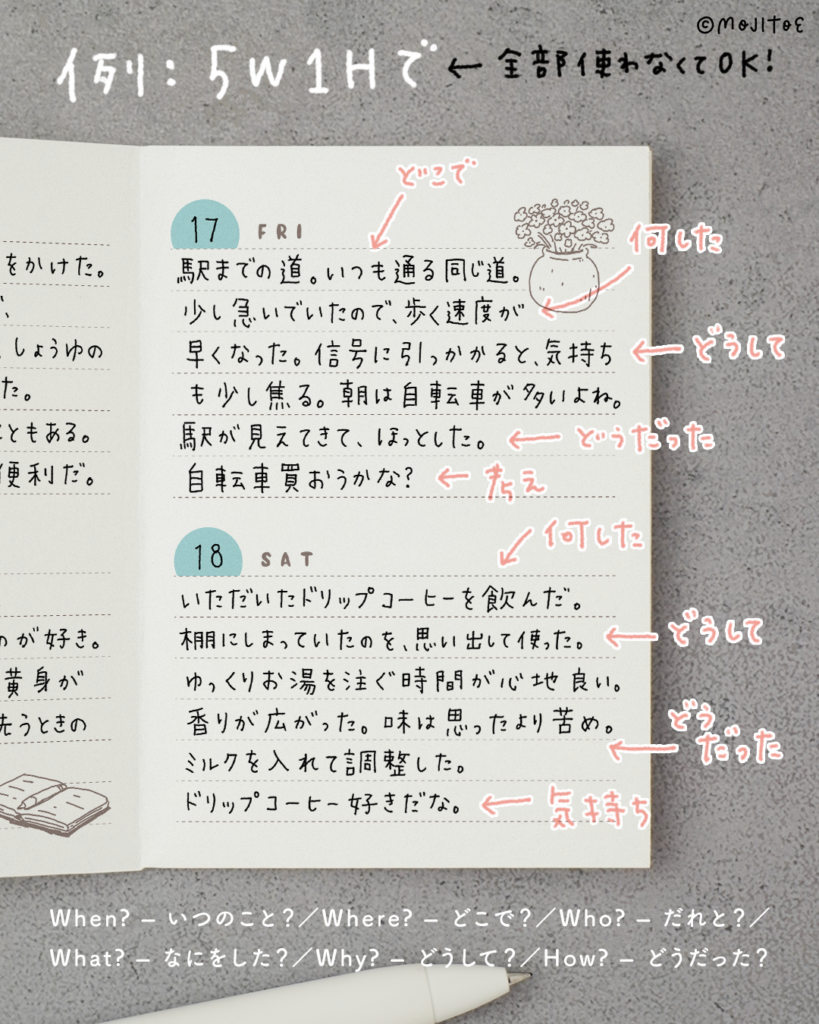 ©MOJITOE
例：5W1Hで ← 全部使わなくてOK！
をかけた。
しょうゆの
た。
ともある。
便利だ。
のが好き。
黄身が
洗うときの
どこで
17 FRI
何した
駅までの道。いつも通る同じ道。
少し急いでいたので、歩く速度が
早くなった。信号に引っかかると、気持ち
どうして
も少し焦る。朝は自転車が多いよね。
駅が見えてきて、ほっとした。
どうだった
自転車買おうかな？
考え
18 SAT
何した
いただいたドリップコーヒーを飲んだ。
棚にしまっていたのを、思い出して使った。
どうして
ゆっくりお湯を注ぐ時間が心地良い。
香りが広がった。味は思ったより苦め。
どう
だった
ミルクを入れて調整した。
ドリップコーヒー好きだな。
気持ち
When? – いつのこと？／Where? – どこで？／Who? – だれと？／
What? – なにをした？／Why? – どうして？／How? – どうだった？